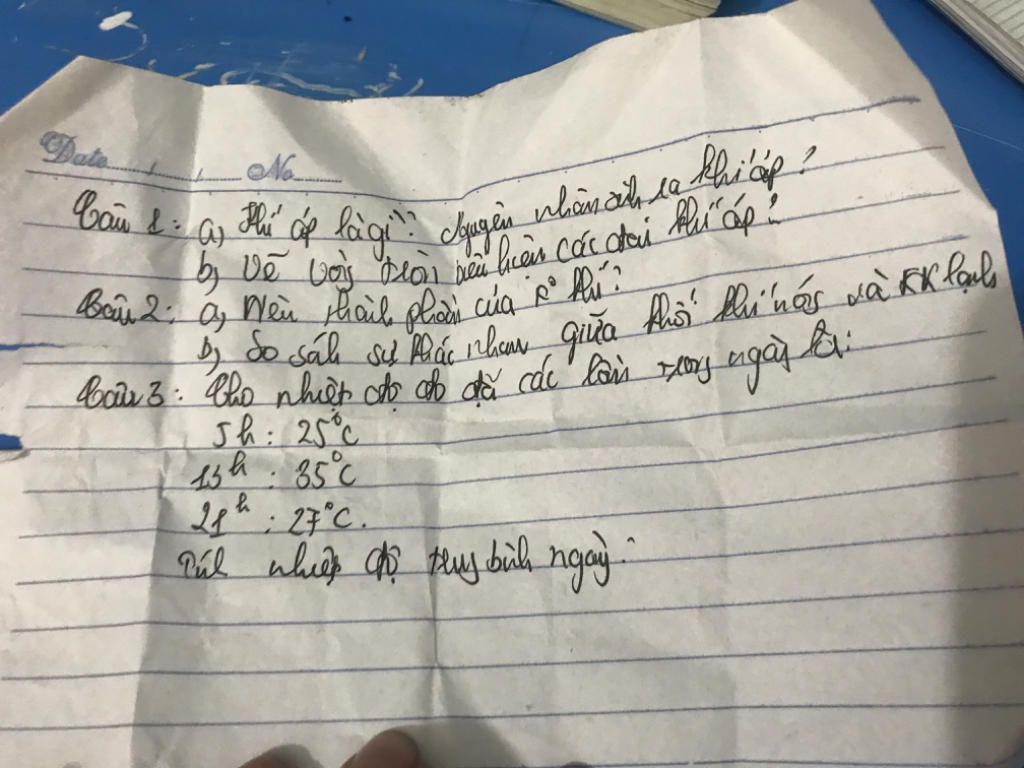 Date...../...../..... No..........
Câu 1: a, Khí áp là gì? Nguyên nhân sinh ra khí áp?
b, Vẽ vòng tròn biểu hiện các đai khí áp?
Câu 2: a, Nêu thành phần của k² khí?
b, So sánh sự khác nhau giữa khối khí nóng và KK lạnh
Câu 3: Cho nhiệt độ đo các lần trong ngày là:
5h: 25°C
13h: 35°C
21h: 27°C.
Tính nhiệt độ trung bình ngày?